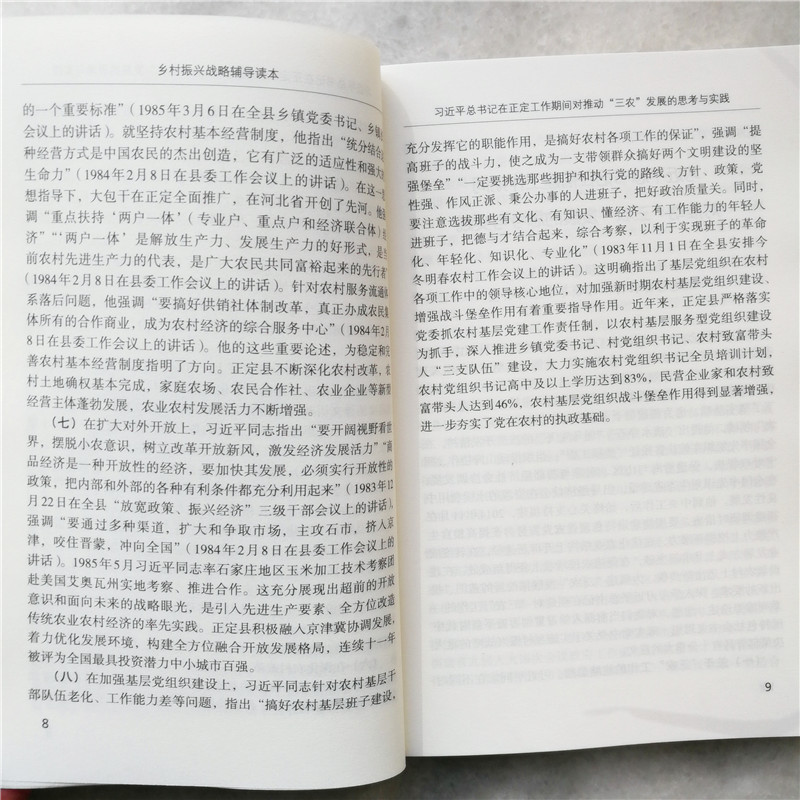 乡村振兴战略辅导读本
的一个重要标准”（1985年3月6日在全县乡镇党委书记、乡镇
会议上的讲话）。就坚持农村基本经营制度，他指出“统分结合
种经营方式是中国农民的杰出创造，它有广泛的适应性和强大
生命力”（1984年2月8日在县委工作会议上的讲话）。在这一
想指导下，大包干在正定全面推广，在河北省开创了先河。他
调“重点扶持‘两户一体’（专业户、重点户和经济联合体）
济”“‘两户一体’是解放生产力、发展生产力的好形式，是
前农村先进生产力的代表，是广大农民共同富裕起来的先行者”
（1984年2月8日在县委工作会议上的讲话）。针对农村服务流通体
系落后问题，他强调“要搞好供销社体制改革，真正办成农民集
体所有的合作商业，成为农村经济的综合服务中心”（1984年2月
8日在县委工作会议上的讲话）。他的这些重要论述，为稳定和完
善农村基本经营制度指明了方向。正定县不断深化农村改革，农
村土地确权基本完成，家庭农场、农民合作社、农业企业等新型
经营主体蓬勃发展，农业农村发展活力不断增强。
（七）在扩大对外开放上，习近平同志指出“要开阔视野看世
界，摆脱小农意识，树立改革开放新风，激发经济发展活力”“商
品经济是一种开放性的经济，要加快其发展，必须实行开放性的
政策，把内部和外部的各种有利条件都充分利用起来”（1983年12
月22日在全县“放宽政策、振兴经济”三级干部会议上的讲话），
强调“要通过多种渠道，扩大和争取市场，主攻石市，挤入京
津，咬住晋蒙，冲向全国”（1984年2月8日在县委工作会议上的
讲话）。1985年5月习近平同志率石家庄地区玉米加工技术考察团
赴美国艾奥瓦州实地考察、推进合作。这充分展现出超前的开放
意识和面向未来的战略眼光，是引入先进生产要素、全方位改造
传统农业农村经济的率先实践。正定县积极融入京津冀协调发展，
着力优化发展环境，构建全方位融合开放发展格局，连续十一年
被评为全国最具投资潜力中小城市百强。
（八）在加强基层党组织建设上，习近平同志针对农村基层干
部队伍老化、工作能力差等问题，指出“搞好农村基层班子建设，
8
习近平总书记在正定工作期间对推动“三农”发展的思考与实践
充分发挥它的职能作用，是搞好农村各项工作的保证”，强调“提
高班子的战斗力，使之成为一支带领群众搞好两个文明建设的坚
强堡垒”“一定要挑选那些拥护和执行党的路线、方针、政策，党
性强、作风正派、秉公办事的人进班子，把好政治质量关。同时，
要注意选拔那些有文化、有知识、懂经济、有工作能力的年轻人
进班子，把德与才结合起来，综合考察，以利于实现班子的革命
化、年轻化、知识化、专业化”（1983年11月1日在全县安排今
冬明春农村工作会议上的讲话）。这明确指出了基层党组织在农村
各项工作中的领导核心地位，对加强新时期农村基层党组织建设、
增强战斗堡垒作用有着重要指导作用。近年来，正定县严格落实
党委抓农村基层党建工作责任制，以农村基层服务型党组织建设
为抓手，深入推进乡镇党委书记、村党组织书记、农村致富带头
人“三支队伍”建设，大力实施农村党组织书记全员培训计划，
农村党组织书记高中及以上学历达到83%，民营企业家和农村致
富带头人达到46%，农村基层党组织战斗堡垒作用得到显著增强，
进一步夯实了党在农村的执政基础。
9